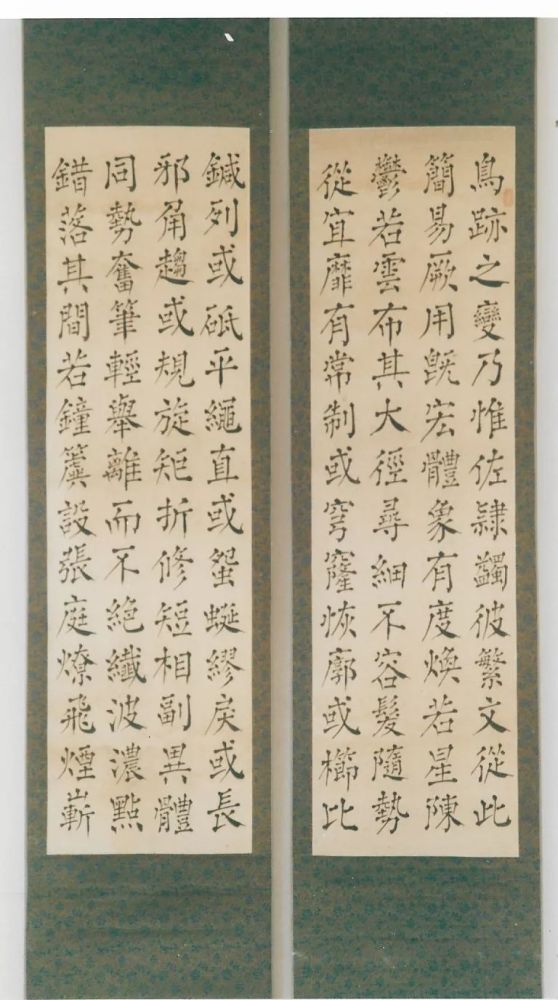 鳥跡之變乃惟佐隷蠲彼繁文從此
簡易厥用旣宏體象有度煥若星陳
鬱若雲布其大徑尋細不容髮隨勢
從宜靡有常制或穹窿恢廓或櫛比
鍼列或砥平繩直或蜿蜒繆戾或長
邪角趨或規旋矩折修短相副異體
同勢奮筆輕舉離而不絶纖波濃點
錯落其間若鐘簴設張庭燎飛煙嶄